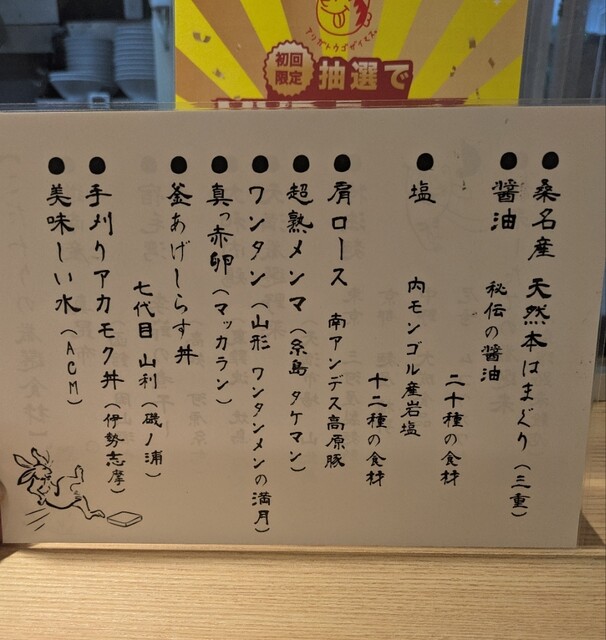 アリガトウゴザイマス
初回
限定
抽選で
●桑名産 天然本はまぐり(三重)
●醤油 秘伝の醤油
二十種の食材
●塩 内モンゴル産岩塩
十二種の食材
●肩ロース 南アンデス高原豚
●超熟メンマ(糸島 タケマン)
●ワンタン(山形 ワンタンメンの満月)
●真っ赤卵(マッカラン)
●釜あげしらす丼
七代目 山利(磯ノ浦)
●手刈りアカモク丼(伊勢志摩)
●美味しい水(ACM)